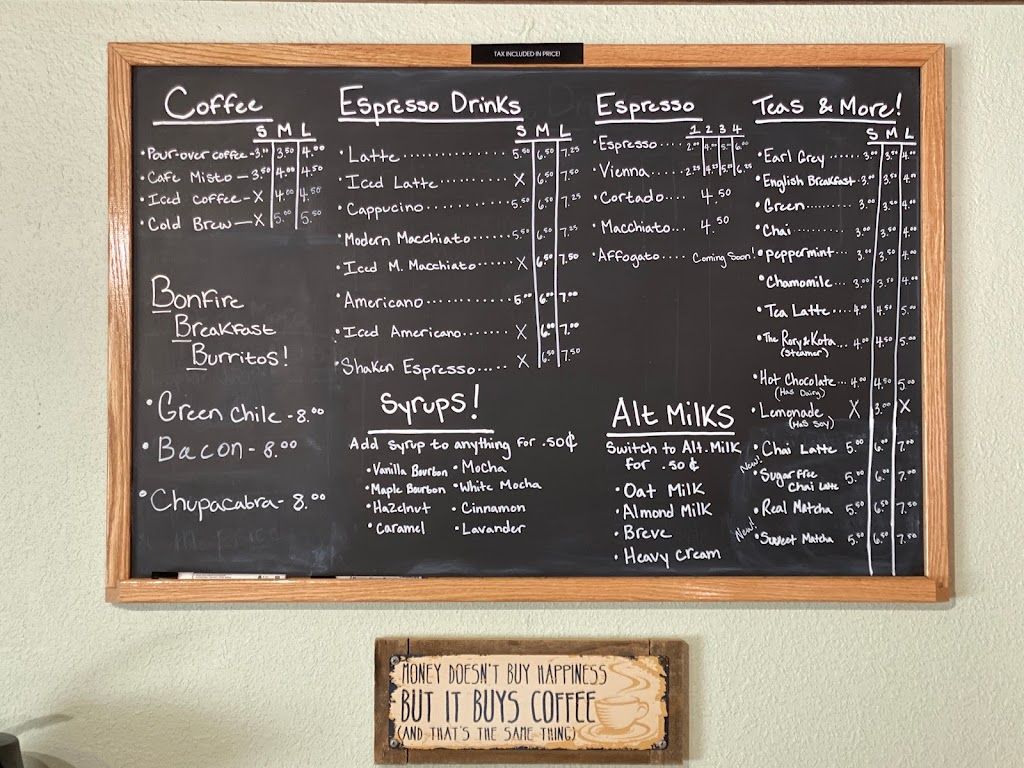 TAX INCLUDED IN PRICE!
Coffee
S M L
• Pour-over coffee - 3.00 3.50 4.00
• Cafe Misto — 3.50 4.00 4.50
• Iced Coffee - X 4.00 4.50
• Cold Brew — X 5.00 5.50
Bonfire
Breakfast
Burritos!
• Green Chile - 8.00
• Bacon - 8.00
• Chupacabra - 8.00
Espresso Drinks
S M L
• Latte 5.50 6.50 7.25
• Iced Latte X 6.50 7.50
• Cappucino 5.50 6.50 7.25
• Modern Macchiato 5.50 6.50 7.25
• Iced M. Macchiato X 6.50 7.50
• Americano 5.00 6.00 7.00
• Iced Americano X 6.00 7.00
• Shaken Espresso X 6.50 7.50
Syrups!
Add syrup to anything for .50¢
• Vanilla Bourbon • Mocha
• Maple Bourbon • White Mocha
• Hazelnut • Cinnamon
• Caramel • Lavander
Espresso
1 2 3 4
• Espresso 2.00 4.00 5.00 6.00
• Vienna 2.25 4.25 5.25 6.25
• Cortado 4.50
• Macchiato 4.50
• Affogato Coming Soon!
Alt Milks
Switch to Alt. Milk
for .50¢
• Oat Milk
• Almond Milk
• Breve
• Heavy Cream
Teas & More!
S M L
• Earl Grey 3.00 3.50 4.00
• English Breakfast 3.00 3.50 4.00
• Green 3.00 3.50 4.00
• Chai 3.00 3.50 4.00
• Peppermint 3.00 3.50 4.00
• Chamomile 3.00 3.50 4.00
• Tea Latte 4.00 4.50 5.00
• The Rory & Kota 4.00 4.50 5.00
(Steamer)
• Hot Chocolate 4.00 4.50 5.00
(Has Dairy)
• Lemonade X 3.00 X
(Has Soy)
• Chai Latte 5.00 6.00 7.00
New!
• Sugar Free 5.00 6.00 7.00
Chai Latte
• Real Matcha 5.50 6.50 7.50
New!
• Sweet Matcha 5.50 6.50 7.50
MONEY DOESN'T BUY HAPPINESS
BUT IT BUYS COFFEE
(AND THAT'S THE SAME THING)